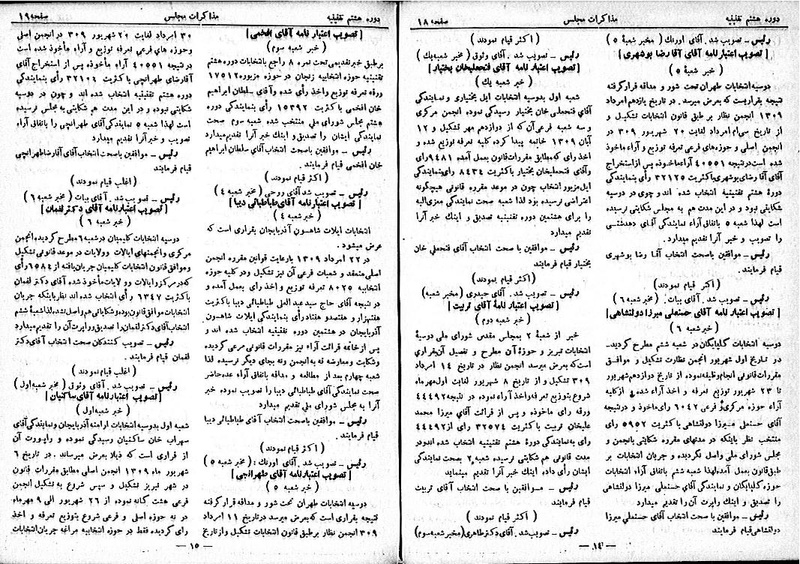 دوره هشتم تقنینیه
مذاکرات مجلس
صفحه ۱۸
رئیس ـ تصویب شد. آقای اورنگ (مخبر شعبه ۵)
[تصویب اعتبارنامه آقای آقا رضا بوشهری]
(خبر شعبه ۵)
دوسیه انتخابات طهران تحت شور و مداقه قرارگرفته
نتیجه بقراریست که بعرض میرسد. در تاریخ یازدهم امرداد
۱۳۰۹ انجمن نظار بر طبق قانون انتخابات تشکیل و
از تاریخ سی‌ام امرداد لغایت ۲۰ شهریور ۳۰۹ در
انجمن اصلی و حوزه‌های فرعی تعرفه توزیع و آراء ماخوذ
شده است در نتیجه ۴۰۵۵۱ رأی ماخوذه پس از استخراج
آقای آقا رضای بوشهری باکثریت ۳۲۱۲۵ رأی بنمایندگی
دورهٔ هشتم تقنینیه انتخاب شده اند و چون در دوسیه
شکایتی نبود و در این مدت هم به مجلس شکایتی نرسیده
است لهذا شعبه ۵ باتفاق آراء نمایندگی آقای دهدشتی
را تصویب و خبر آنرا تقدیم میدارد
رئیس ـ موافقین باصحت انتخاب آقا رضا بوشهری
قیام فرمایند.
(اکثر قیام نمودند)
رئیس ـ تصویب شد. آقای بیات (مخبر شعبه ۶)
[تصویب اعتبار نامه آقای حسنعلی میرزا دولتشاهی]
(خبر شعبه ۶)
دوسیه انتخابات گلپایگان در شعبه ششم مطرح گردید.
در تاریخ اول شهریور انجمن نظارت تشکیل و موافق
مقررات قانونی انجام وظیفه نموده از تاریخ دوازدهم شهریور
تا ۲۳ شهریور توزیع تعرفه و اخذ آراء شده و از کلیه
آراء حوزه مرکزی و فرعی ۶۰۴۲ رأی ماخوذ و در نتیجه
آقای حسنعلی میرزا دولتشاهی با کثریت ۵۹۵۲ رأی
منتخب نظر باینکه در مدتهای مقرره شکایتی بانجمن و
مجلس شورای ملی واصل نگردیده و جریان انتخابات بر
طبق قانون بعمل آمده لهذا شعبه ششم باتفاق آراء انتخابات
حوزه گلپایگان و نمایندگی آقای حسنعلی میرزا دولتشاهی
را تصدیق و اینک راپرت آن را تقدیم میدارد
رئیس ـ موافقین با صحت انتخاب آقای حسنعلی میرزا
دولتشاهی قیام فرمایند
(اکثر قیام نمودند)
رئیس ـ تصویب شد. آقای وثوق (مخبر شعبه یک)
[تصویب اعتبار نامه آقای فتحعلیخان بختیار]
(خبر شعبه یک)
شعبه اول بدوسیه انتخابات ایل بختیاری و نمایندگی
آقای فتحعلی خان بختیار رسیدگی نموده انجمن مرکزی
و سه شعبه فرعی آن که از دوازدهم مهر تشکیل و ۱۲
آبان ۱۳۰۹ خاتمه پیدا کرده کلیه تعرفه توزیع شده و
اخذ رای که مطابق مقررات قانون بعمل آمده ۹۴۸۱ رأی
و آقای فتحعلیخان بختیار باکثریت ۸۴۳۴ رأی بنمایندگی
ایل مزبور انتخاب چون در موعد مقرره قانونی هیچگونه
اعتراضی نرسیده بود لذا شعبه صحت نمایندگی معزی‌الیه
را برای هشتمین دوره تقنینیه تصدیق و اینک خبر آنرا
تقدیم میدارد
رئیس ـ موافقین با صحت انتخاب آقای فتحعلی خان
بختیار قیام فرمایند
(اکثر قیام نمودند)
رئیس ـ تصویب شد. آقای حیدری (مخبر شعبه)
[تصویب اعتبار نامهٔ آقای تربیت]
(خبر شعبه دوم)
خبر از شعبهٔ ۲ بمجلس مقدس شورای ملی دوسیهٔ
انتخابات تبریز و حوزهٔ آن مطرح و تفصیل آن بقراری
است که بعرض میرسد انجمن نظار در تاریخ ۱۴ امرداد
۳۰۹ تشکیل و از تاریخ ۸ شهریور لغایت اول مهرماه
شروع بتوزیع تعرفه و اخذ آراء نموده در نتیجه ۴۴۴۹۲
ورقه رای ماخوذه و پس از قرائت آقای میرزا محمد
علیخان تربیت با کثریت ۳۲۵۷۴ رای از ۴۴۴۹۲
رای به نمایندگی دورهٔ هشتم تقنینیه انتخاب شده اند و در
مدت قانونی هم شکایتی نرسیده شعبه ۲ بصحت نمایندگی
ایشان رأی داده اینک خبر آنرا تقدیم مینماید
رئیس ـ موافقین با صحت انتخاب آقای تربیت
قیام فرمایند
(اکثر قیام نمودند)
رئیس ـ تصویب شد. آقای دکتر طاهری (مخبر شعبه سوم)
ـ ۱۴ ـ
دوره هشتم تقنینیه
مذاکرات مجلس
صفحه ۱۹
[تصویب اعتبار نامه آقای افخمی]
(خبر شعبه سوم)
بر طبق خبر تقدیمی تحت نمره ۸ راجع بانتخابات دوره هشتم
تقنینیه حوزه انتخابیه زنجان در حوزه مزبوره ۱۷۵۱۲
ورقه تعرفه توزیع و اخذ رأی شده و آقای سلطان ابراهیم
خان افخمی با کثریت ۱۵۳۹۲ رأی بنمایندگی دوره
هشتم مجلس شورای ملی منتخب شده شعبه سوم صحت
نمایندگی ایشان را تصدیق و اینک خبر آنرا تقدیم میدارد
رئیس ـ موافقین باصحت انتخاب آقای سلطان ابراهیم
خان افخمی قیام فرمایند.
(اکثر قیام نمودند)
رئیس ـ تصویب شد. آقای روحی (مخبر شعبه ۴)
[تصویب اعتبار نامه آقای طباطبائی دیبا]
(خبر شعبه ۴)
انتخابات ایلات شاهسون آذربایجان بقراری است که
عرض میشود.
در ۲۲ امرداد ۱۳۰۹ بارعایت قوانین مقرره انجمن
اصلی منعقد و شعبات فرعی آن نیز تشکیل و در کلیه حوزه
انتخابیه ۸۰۲۵ تعرفه توزیع و اخذ رأی بعمل آمده و
در نتیجه آقای حاج سید عبدالعلی طباطبائی دیبا باکثریت
هفتهزار و هفتصد و هفتاد رأی بنمایندگی ایلات شاهسون
آذربایجان در هشتمین دوره تقنینیه انتخاب شده اند و
پس از خاتمه قرائت آراء نیز مقررات قانونی مرعی گردیده
و شکایت و معارضه نه به انجمن و نه بجای دیگر نرسیده لذا
شعبه چهارم بعد از مطالعه و مداقه باتفاق آراء عده حاضر
صحت نمایندگی آقای طباطبائی دیبا را تصویب نموده خبر
آنرا به مجلس شورای ملی تقدیم میدارد
رئیس ـ موافقین باصحت انتخاب آقای طباطبائی دیبا
قیام فرمایند.
(اکثر قیام نمودند)
رئیس ـ تصویب شد. آقای اورنگ: (مخبر شعبه ۵)
[تصویب اعتبارنامه آقای طهرانچی]
(خبر شعبه ۵)
دوسیه انتخابات طهران تحت شور و مداقه قرار گرفته
نتیجه بقراری است که بعرض میرسد در تاریخ ۱۱ امرداد
۳۰۹ انجمن نظار بر طبق قانون انتخابات تشکیل و از تاریخ
۳۰ امرداد لغایت ۲۰ شهریور ۳۰۹ در انجمن اصلی
و حوزه های فرعی تعرفه توزیع و آراء مأخوذ شده است
در نتیجه ۴۰۵۵۱ آراء مأخوذه پس از استخراج آقای
آقا رضای طهرانچی با کثریت ۳۲۱۰۶ رأی بنمایندگی
دوره هشتم تقنینیه انتخاب شده اند و چون در دوسیه
شکایتی نبود و در این مدت هم شکایتی به مجلس نرسیده
است لهذا شعبه ۵ نمایندگی آقای طهرانچی را باتفاق آراء
تصویب و خبر آنرا تقدیم میدارد
رئیس ـ موافقین باصحت انتخاب آقای آقا رضا طهرانچی
قیام فرمایند
(اغلب قیام نمودند)
رئیس ـ تصویب شد. آقای بیات (مخبر شعبه ۶)
[تصویب اعتبار نامه آقای دکتر لقمان]
(خبر شعبه ۶)
دوسیه انتخابات کلیمیان در شعبه ۶ مطرح گردید. انجمن
مرکزی و انجمنهای ایالات و ولایات در موعد قانونی تشکیل
و موافق قانون انتخابات کلیمیان جریان یافته از ۶۵۸۴ رأی
که در مرکز و ایالات و ولایات مأخوذ شده آقای دکتر لقمان
باکثریت ۶۳۴۷ رأی انتخاب شده اند نظر باینکه جریان
انتخابات موافق قانون بوده و شکایاتی هم واصل نشده لذا شعبه ششم
انتخاب آقای دکتر لقمان را تصدیق و راپرت آن را تقدیم میدارد
رئیس ـ تصویب کنندگان صحت انتخاب آقای دکتر
لقمان قیام فرمایند.
(اکثر قیام نمودند)
رئیس ـ تصویب شد. آقای وثوق (مخبر شعبه اول)
[تصویب اعتبارنامه آقای ساکنیان]
(خبر شعبه اول)
شعبه اول بدوسیه انتخابات ارامنه آذربایجان و نمایندگی
سهراب خان ساکنیان رسیدگی نموده و راپورت آن
از قراری است که ذیلا بعرض میرساند. در تاریخ ۶
شهریور ماه ۱۳۰۹ انجمن اصلی مطابق مقررات قانون
در شهر تبریز تشکیل و سپس شروع به تشکیل انجمن
فرعی هشت گانه نموده از ۲۶ شهریور الی ۹ مهرماه
در نه حوزه اصلی و فرعی شروع بتوزیع تعرفه و اخذ
رأی گردیده فقط در حوزه انتخابیه مراغه جریان انتخابات
ـ ۱۵ ـ